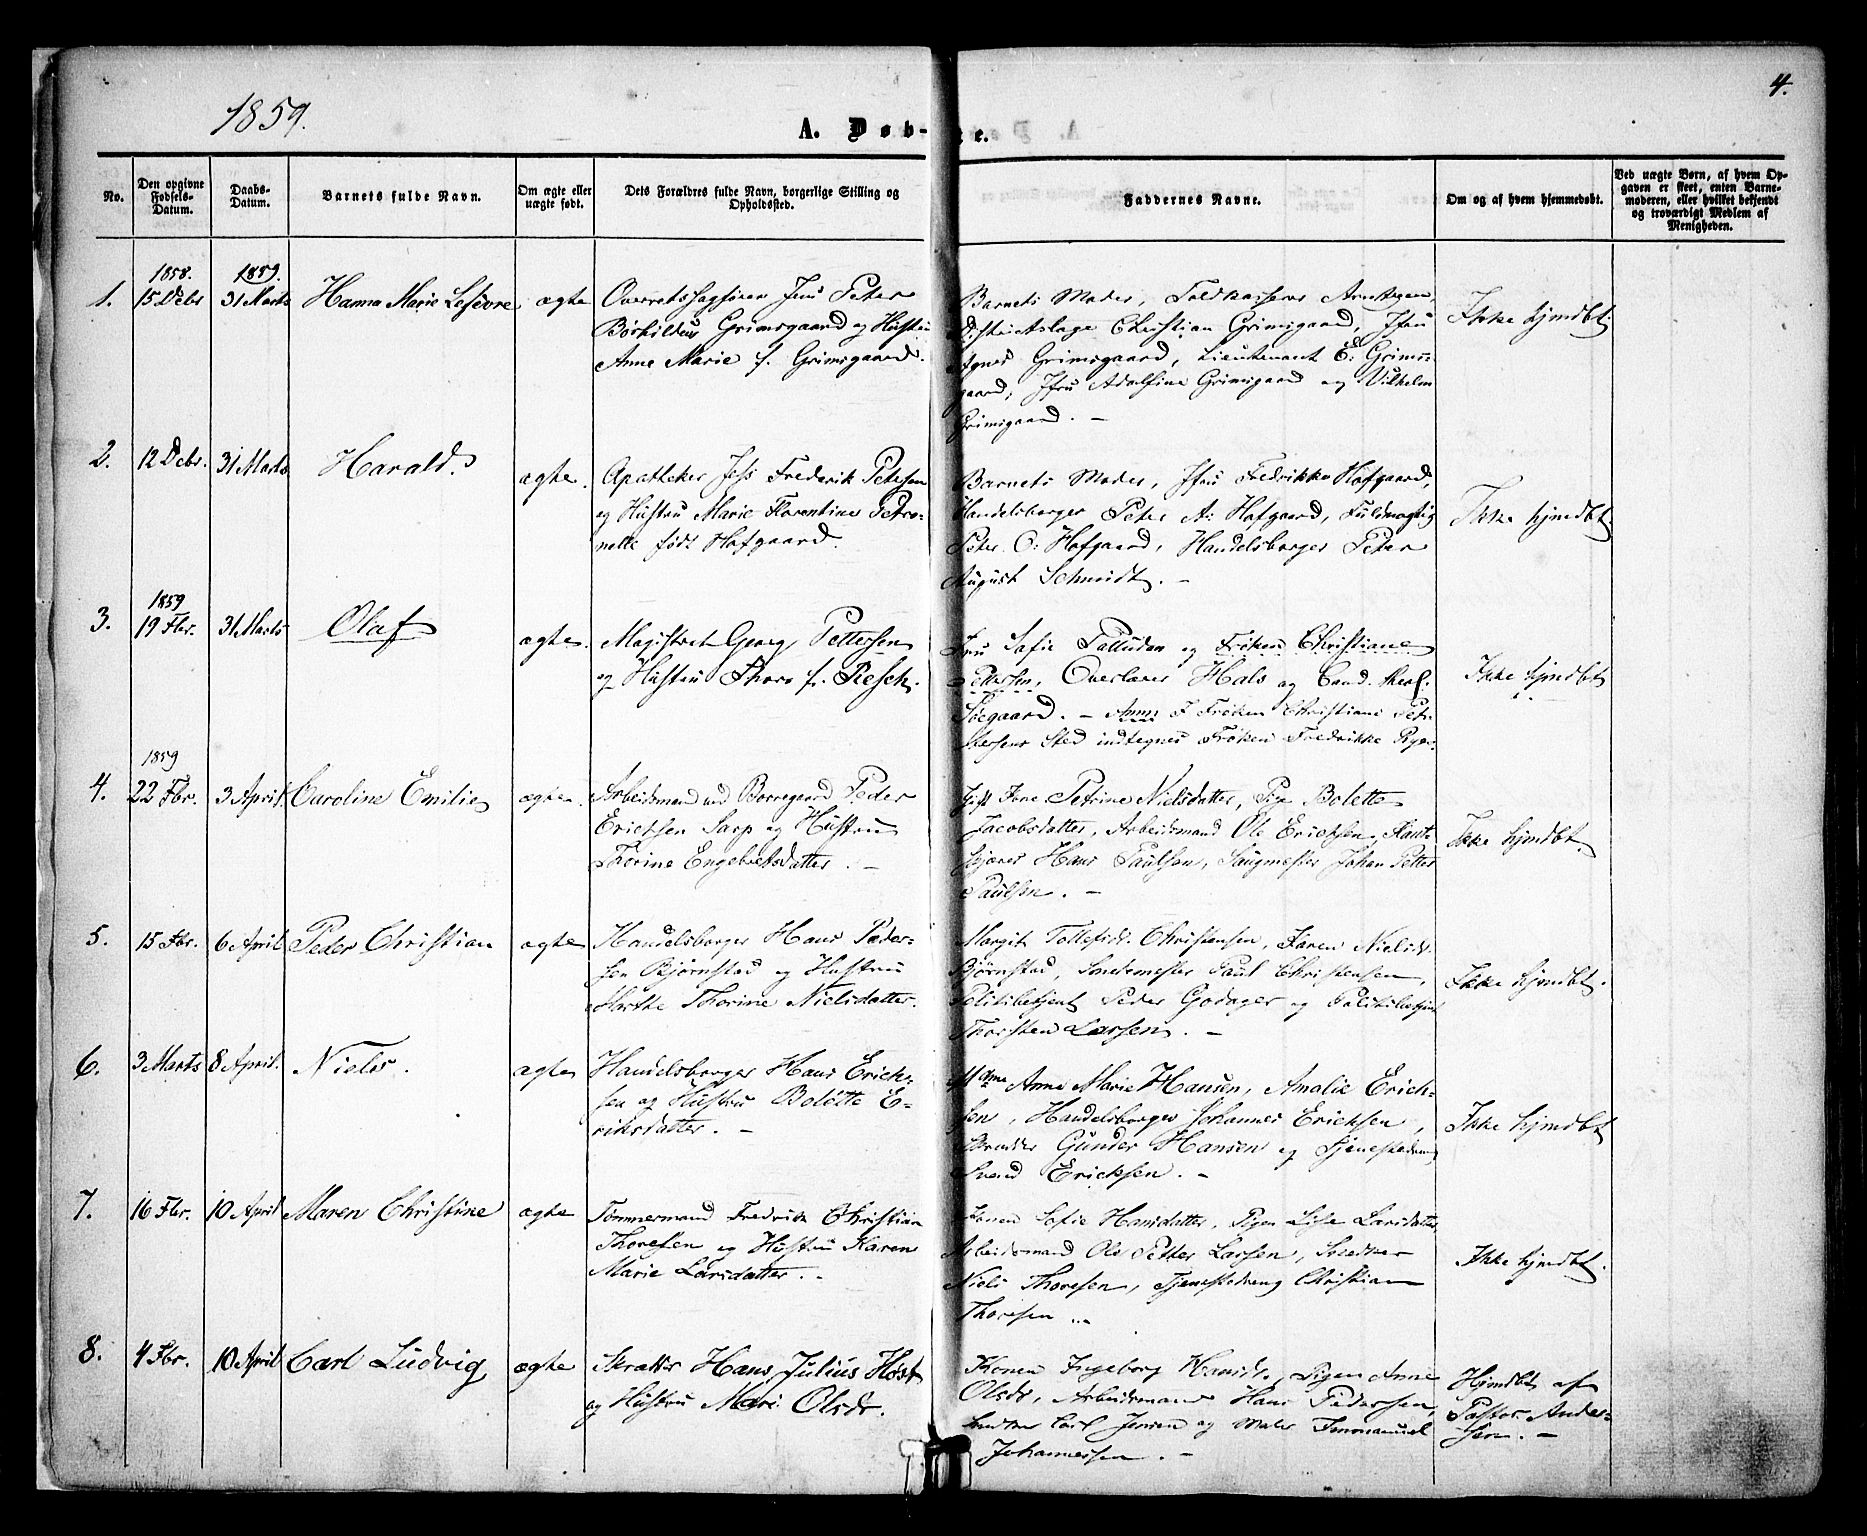 1859.
4.
A. Døb-
te.
No.
Den opgivne
Fødsels-
Datum.
Daabs-
Datum.
Barnets fulde Navn.
Om ægte eller
uægte født.
Dets Forældres fulde Navn, borgerlige Stilling og
Opholdssted.
Faddernes Navne.
Om og af hvem hjemmedøbt.
Ved uægte Børn, af hvem Op-
gaven er skeet, enten Barne-
moderen, eller hvilket bekjendt
og troværdigt Medlem af
Menigheden.
1858.
1859.
1. 15 Debr 31 Marts Hanna Marie Lefevre ægte
Overretssagfører Jens Peter
Grimsgaard og Hustru
Anne Marie f. Grimsgaard.
Barnets Moder, Toldkasserer
Christian Grimsgaard, Jfru
Agnes Grimsgaard, Lieutenant E: Grims-
gaard, Jfru Adolfine Grimsgaard og Vilhelm
Grimsgaard. –
Ikke hjmdbt.
2. 12 Debr. 31 Marts Harald. ægte.
Apotheker Jess Frederik Petersen
og Hustru Marie Florentine Petro-
nelle født Hofgaard.
Barnets Moder, Jfru Fredrikke Hofgaard,
Handelsborger Peter A: Hofgaard, Fuldmægtig
Peter O: Hofgaard, Handelsborger Peter
August Schmidt. –
Ikke hjmdbt.
1859
3. 19 Fbr. 31 Marts Olaf ægte.
Magistrat Georg Pettersen
og Hustru Thora f. Resch.
Fru Sofie Palludan og Frøken Christiane
Pettersen, Overlærer Hals og Cand. theol.
Søegaard. – Anm: I Frøken Christiane Pet-
tersens Sted indtegnes Frøken Fredrikke
Ikke hjmdbt
1859
4. 22 Fbr. 3 April Caroline Emilie ægte.
Arbeidsmand ved Borregaard Peder
Ericksen Sarp og Hustru
Thorine Engebretsdatter. –
Gift Kone Petrine Nielsdatter, Pige Bolette
Jacobsdatter, Arbeidsmand Ole Ericksen, Kant-
skjærer Hans Paulsen, Saugmester Johan Petter
Paulsen. –
Ikke hjmdbt.
5. 15 Fbr. 6 April Peder Christian ægte
Handelsborger Hans Peder-
sen Bjørnstad og Hustru
Marthe Thorine Nielsdatter.
Margit Tollefsdr. Christensen, Karen Nielsdr.
Bjørnstad, Smedemester Paul Christensen,
Politibetjent Peder Godager og Politibetjent
Thorsten Larsen. –
Ikke hjmdbt.
6. 3 Marts 8 April. Niels. ægte
Handelsborger Hans Erick-
sen og Hustru Bolette E-
riksdatter. –
Mdme Anne Marie Hansen, Amalie Erick-
sen, Handelsborger Johannes Ericksen,
Skrædder Gunder Hansen og Tjenestedreng
Svend Ericksen. –
Ikke hjmdbt
7. 16 Fbr. 10 April Maren Christine ægte
Tømmermand Fredrik Christian
Thoresen og Hustru Karen
Marie Larsdatter. –
Konen Sofie Hansdatter, Pigen Lise Larsdatter,
Arbeidsmand Ole Petter Larsen, Snedker
Niels Thoresen, Tjenestedreng Christian
Thoresen. –
Ikke hjmdbt.
8. 4 Fbr. 10 April Carl Ludvig ægte
Skrædder Hans Julius Høst
og Hustru Mari Olsdr.
Konen Ingeborg Hansdr., Pigen Anne
Olsdr, Arbeidsmand Hans Pedersen,
Carl Jensen og Maler Emmanuel
Johannessen. –
Hjmdbt af
Pastor Ander-
sen. –